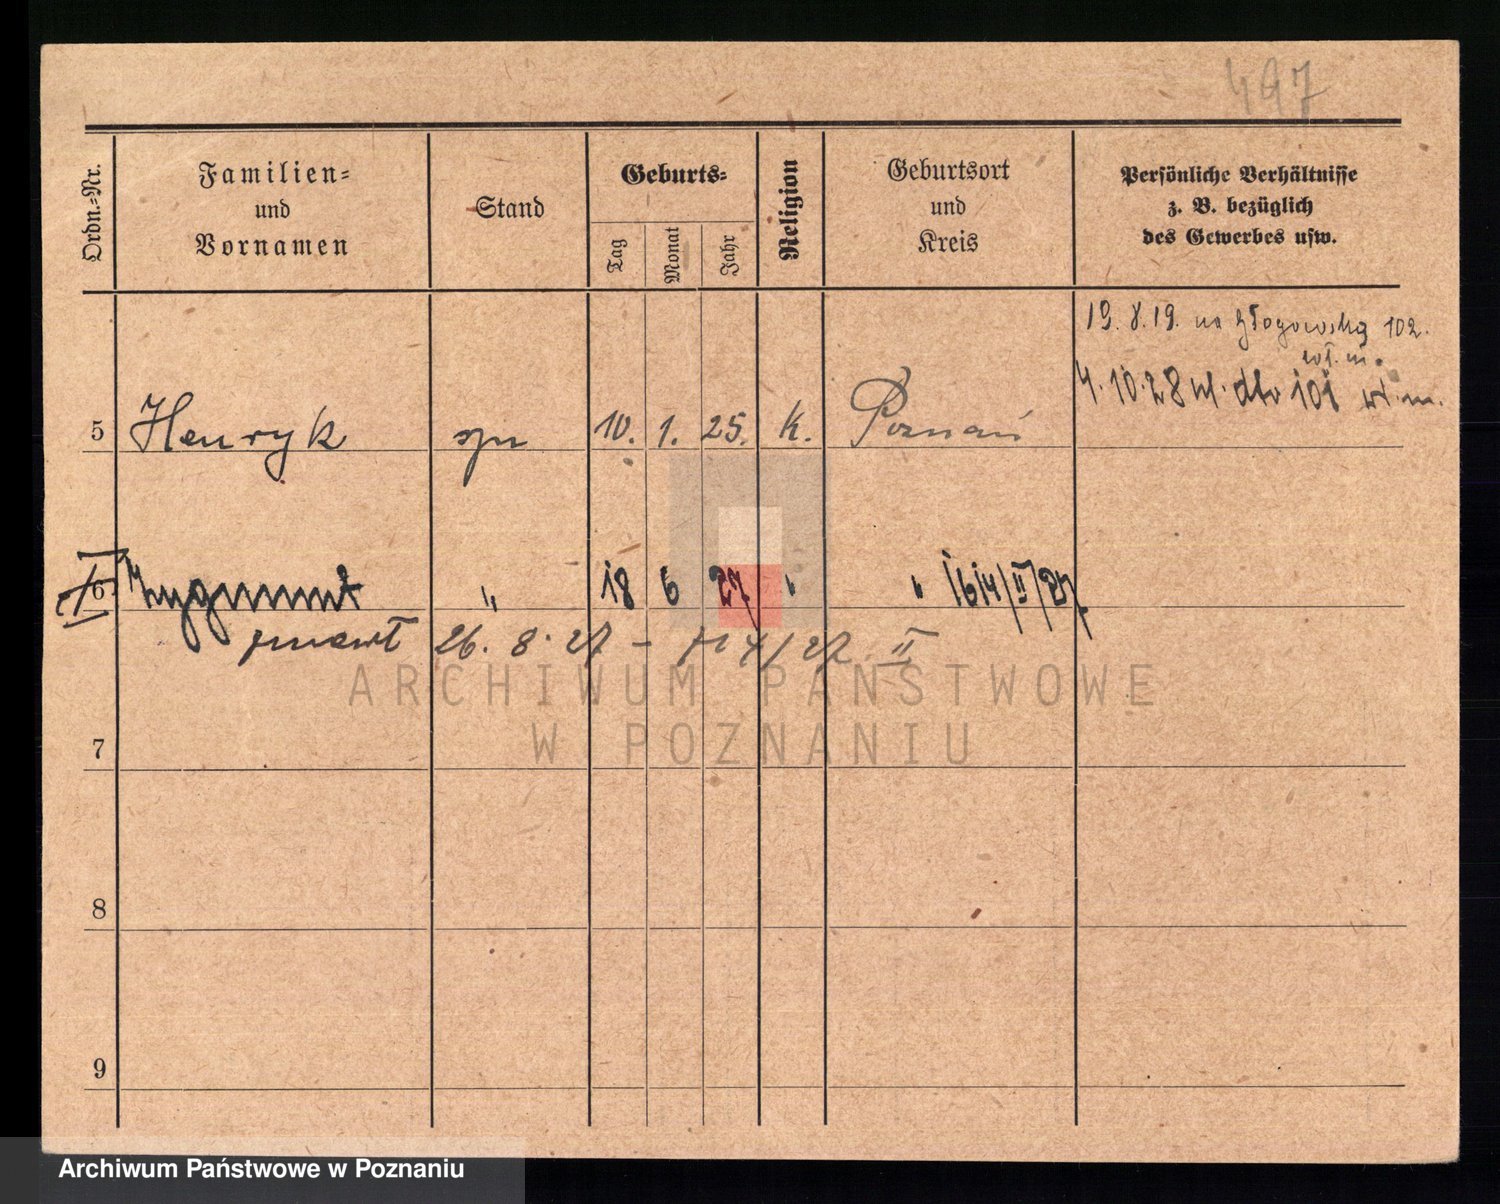 497
Ordn.-Nr. Familien- und Vornamen Stand Geburts- Tag Monat Jahr Religion Geburtsort und Kreis Persönliche Verhältnisse z. B. bezüglich des Gewerbes usw.
19. 8. 19. na Głogowską 102.
wł. m.
4. 10. 28 wł. dto 101 wł. m.
5 Henryk syn 10. 1. 25. K. Poznań
6 Zygmunt " 18 6 27 " "
zmarł 26. 8. 27 – /27 II
ARCHIWUM PAŃSTWOWE
W POZNANIU
7
8
9
Archiwum Państwowe w Poznaniu